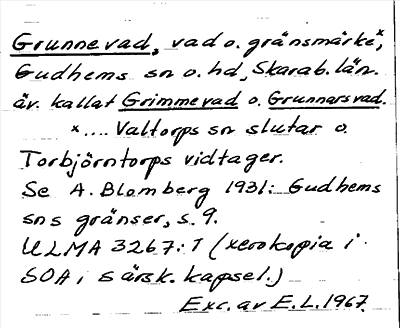 Grunnevad, vad o. gränsmärke x,
Gudhems sn o. hd, Skarab. län.
äv. kallat Grimmevad o. Grunnarsvad.
x .... Valtorps sn slutar o.
Torbjörntorps vidtager.
Se A. Blomberg 1931: Gudhems
sns gränser, s. 9.
ULMA 3267: 1 (xerokopia i
SOA i särsk. kapsel.)
Exc. av E.L. 1967.